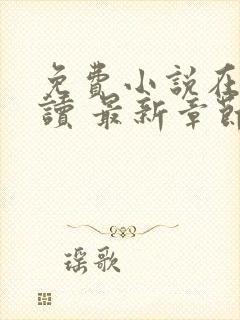 免費小說在
讀 最新章節
瑶歌